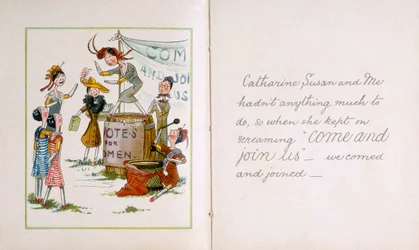 COM
AND JOI
US
VOTES
FOR
WOMEN
Catharine Susan and Me
hadn't anything much to
do, so when she kept on
screaming "come and
join us" — we comed
and joined —